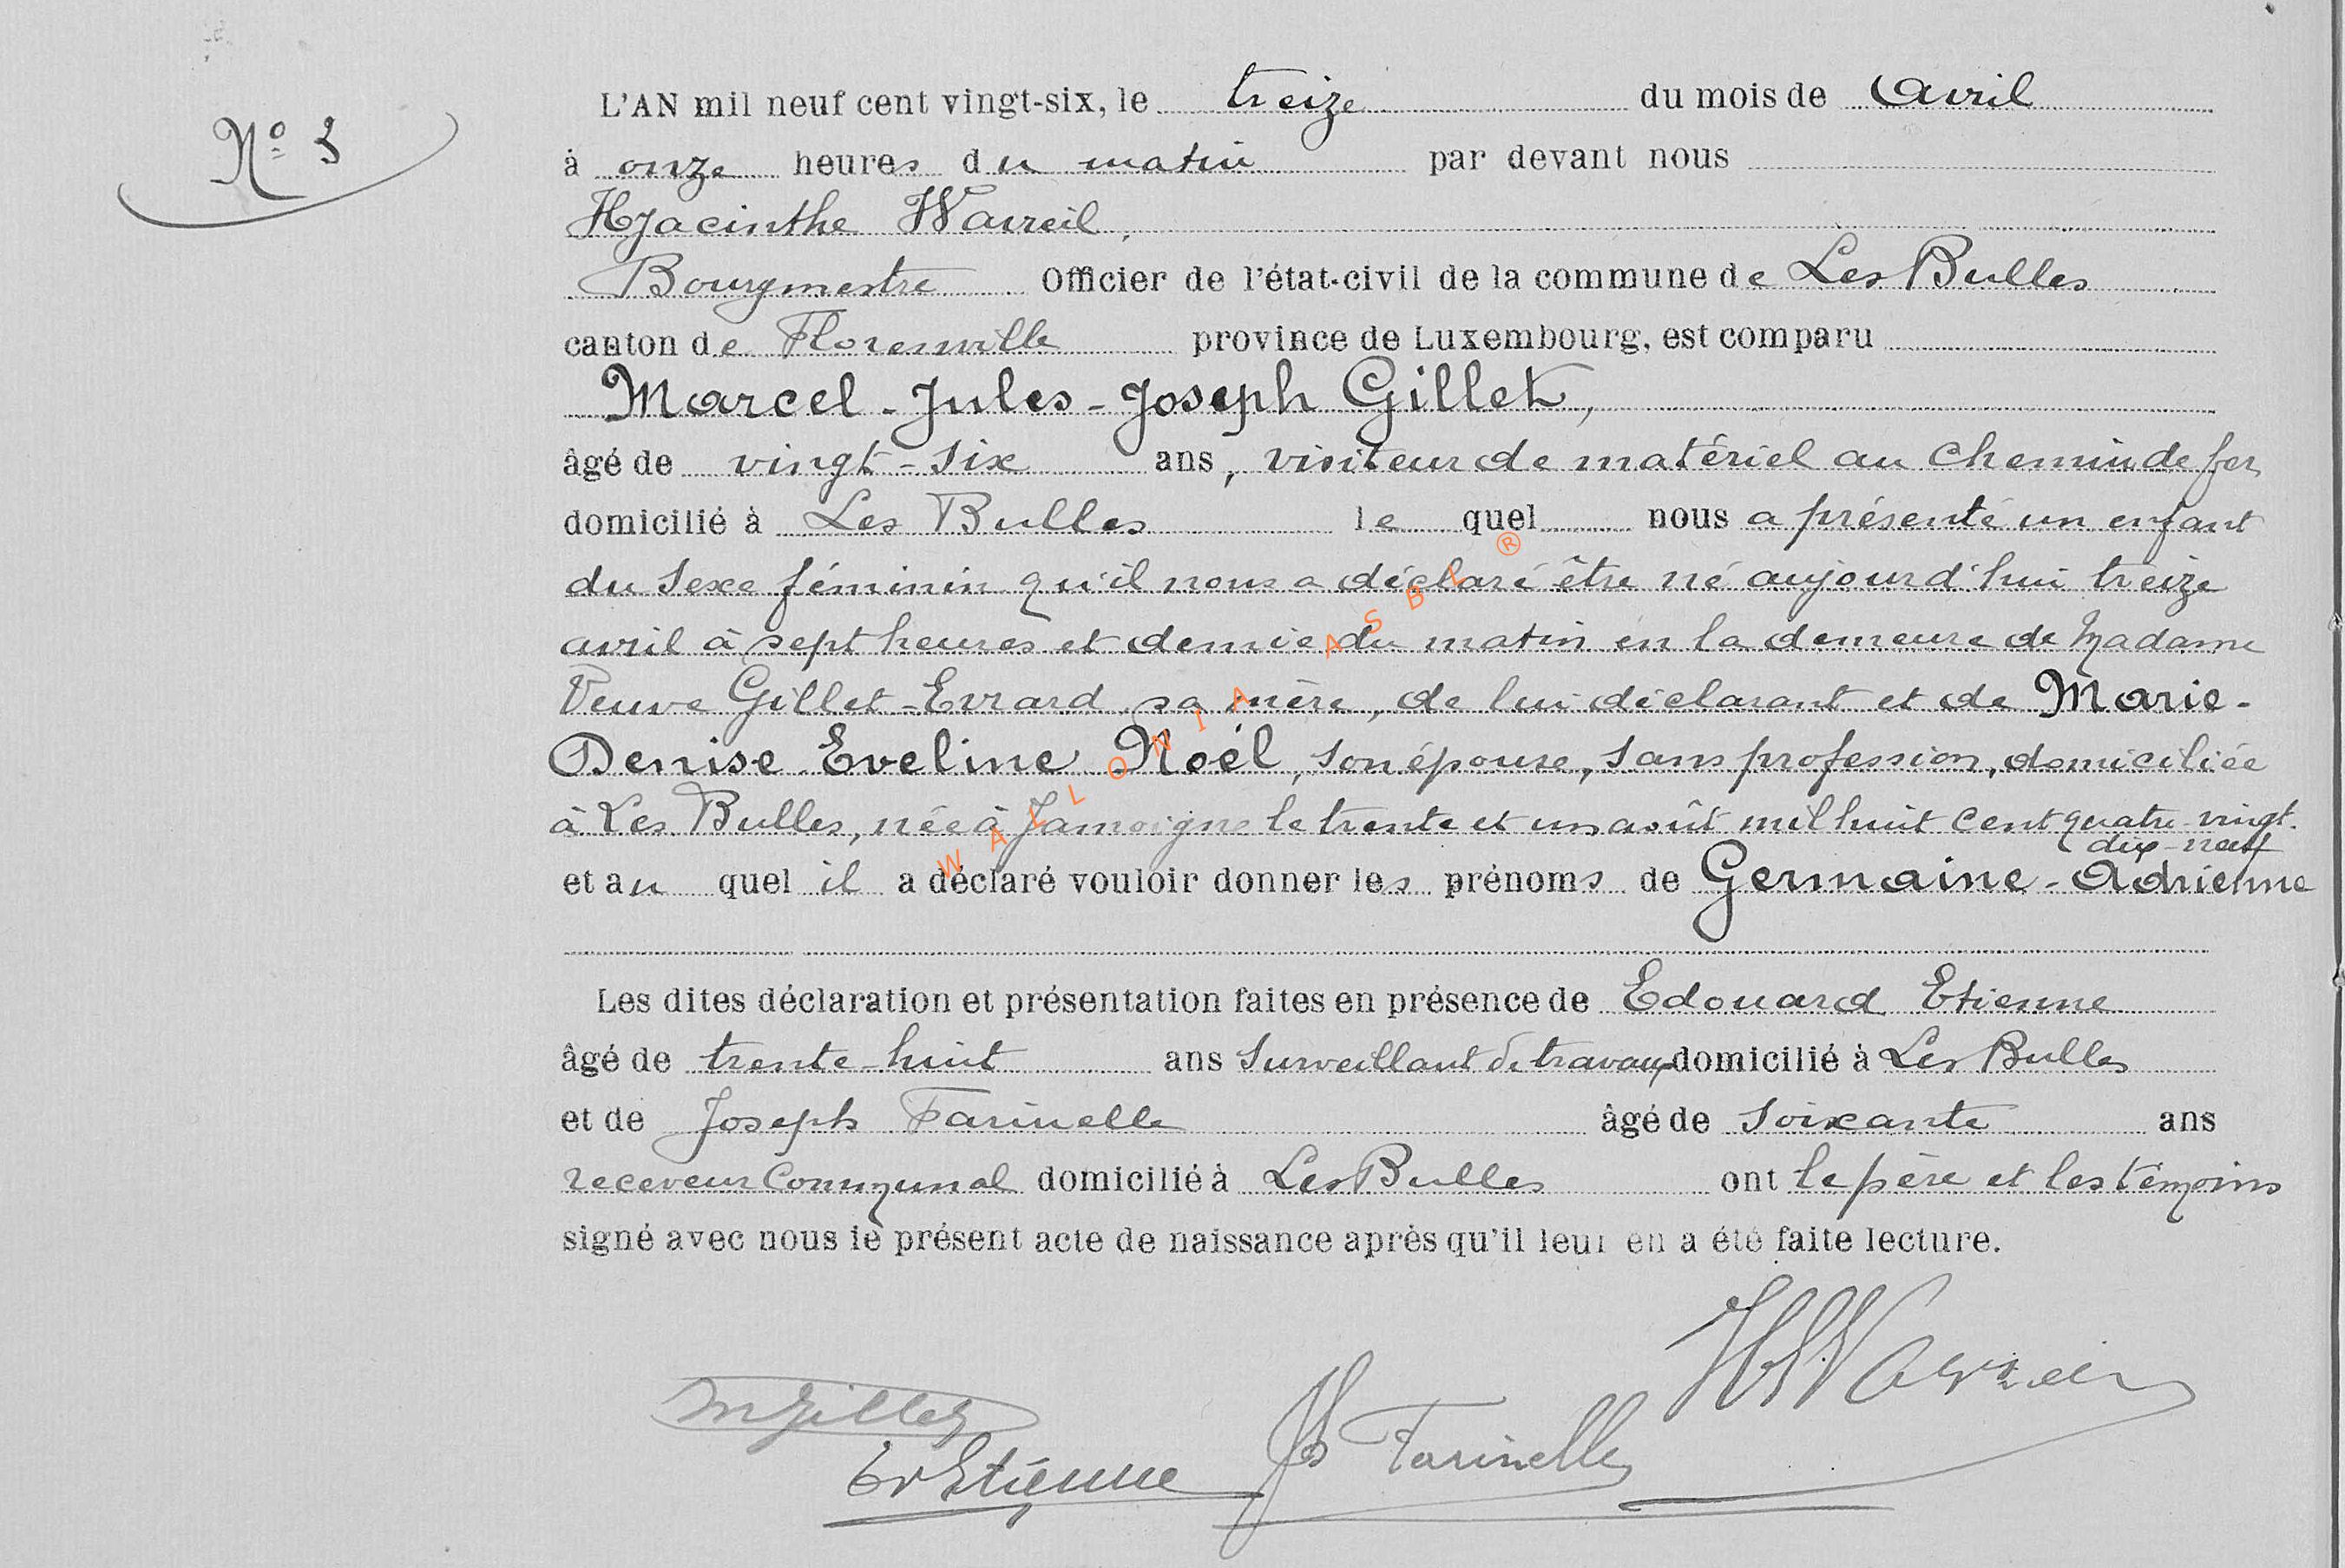 L'AN mil neuf cent vingt-six, le treize du mois de Avril
Nº 3
à onze heures du matin par devant nous
Hyacinthe Wavreil,
Bourgmestre Officier de l'état-civil de la commune de Les Bulles
canton de Florenville province de Luxembourg, est comparu
Marcel-Jules-Joseph Gillet,
âgé de vingt-six ans, visiteur de matériel au chemin de fer
domicilié à Les Bulles lequel nous a présenté un enfant
du sexe féminin qu'il nous a déclaré être né aujourd'hui treize
avril à sept heures et demie du matin en la demeure de Madame
Veuve Gillet-Evrard, sa mère, de lui déclarant et de Marie-
Denise Eveline Noël, son épouse, sans profession, domiciliée
à Les Bulles, née à Jamoigne le trente et un août mil huit cent quatre-vingt-
dix-neuf
et auquel il a déclaré vouloir donner les prénoms de Germaine-Adrienne
Les dites déclaration et présentation faites en présence de Edouard Etienne
âgé de trente-huit ans Surveillant de travaux domicilié à Les Bulles
et de Joseph Farinelle âgé de soixante ans
receveur Communal domicilié à Les Bulles ont le père et les témoins
signé avec nous le présent acte de naissance après qu'il leur en a été faite lecture.
MGillet
Etienne
Js Farinelle
WALLONIA ASBL ®